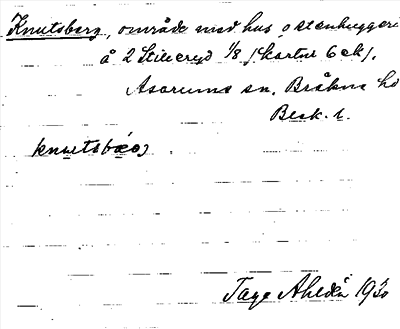 Knutsberg, område med hus o stenhuggeri
å 2 Stilleryd 1/8 (kartor 6 ek).
Asarums sn. Bräkne hd
Blek. l.
knutsbærj
Tage Ahldén 1930